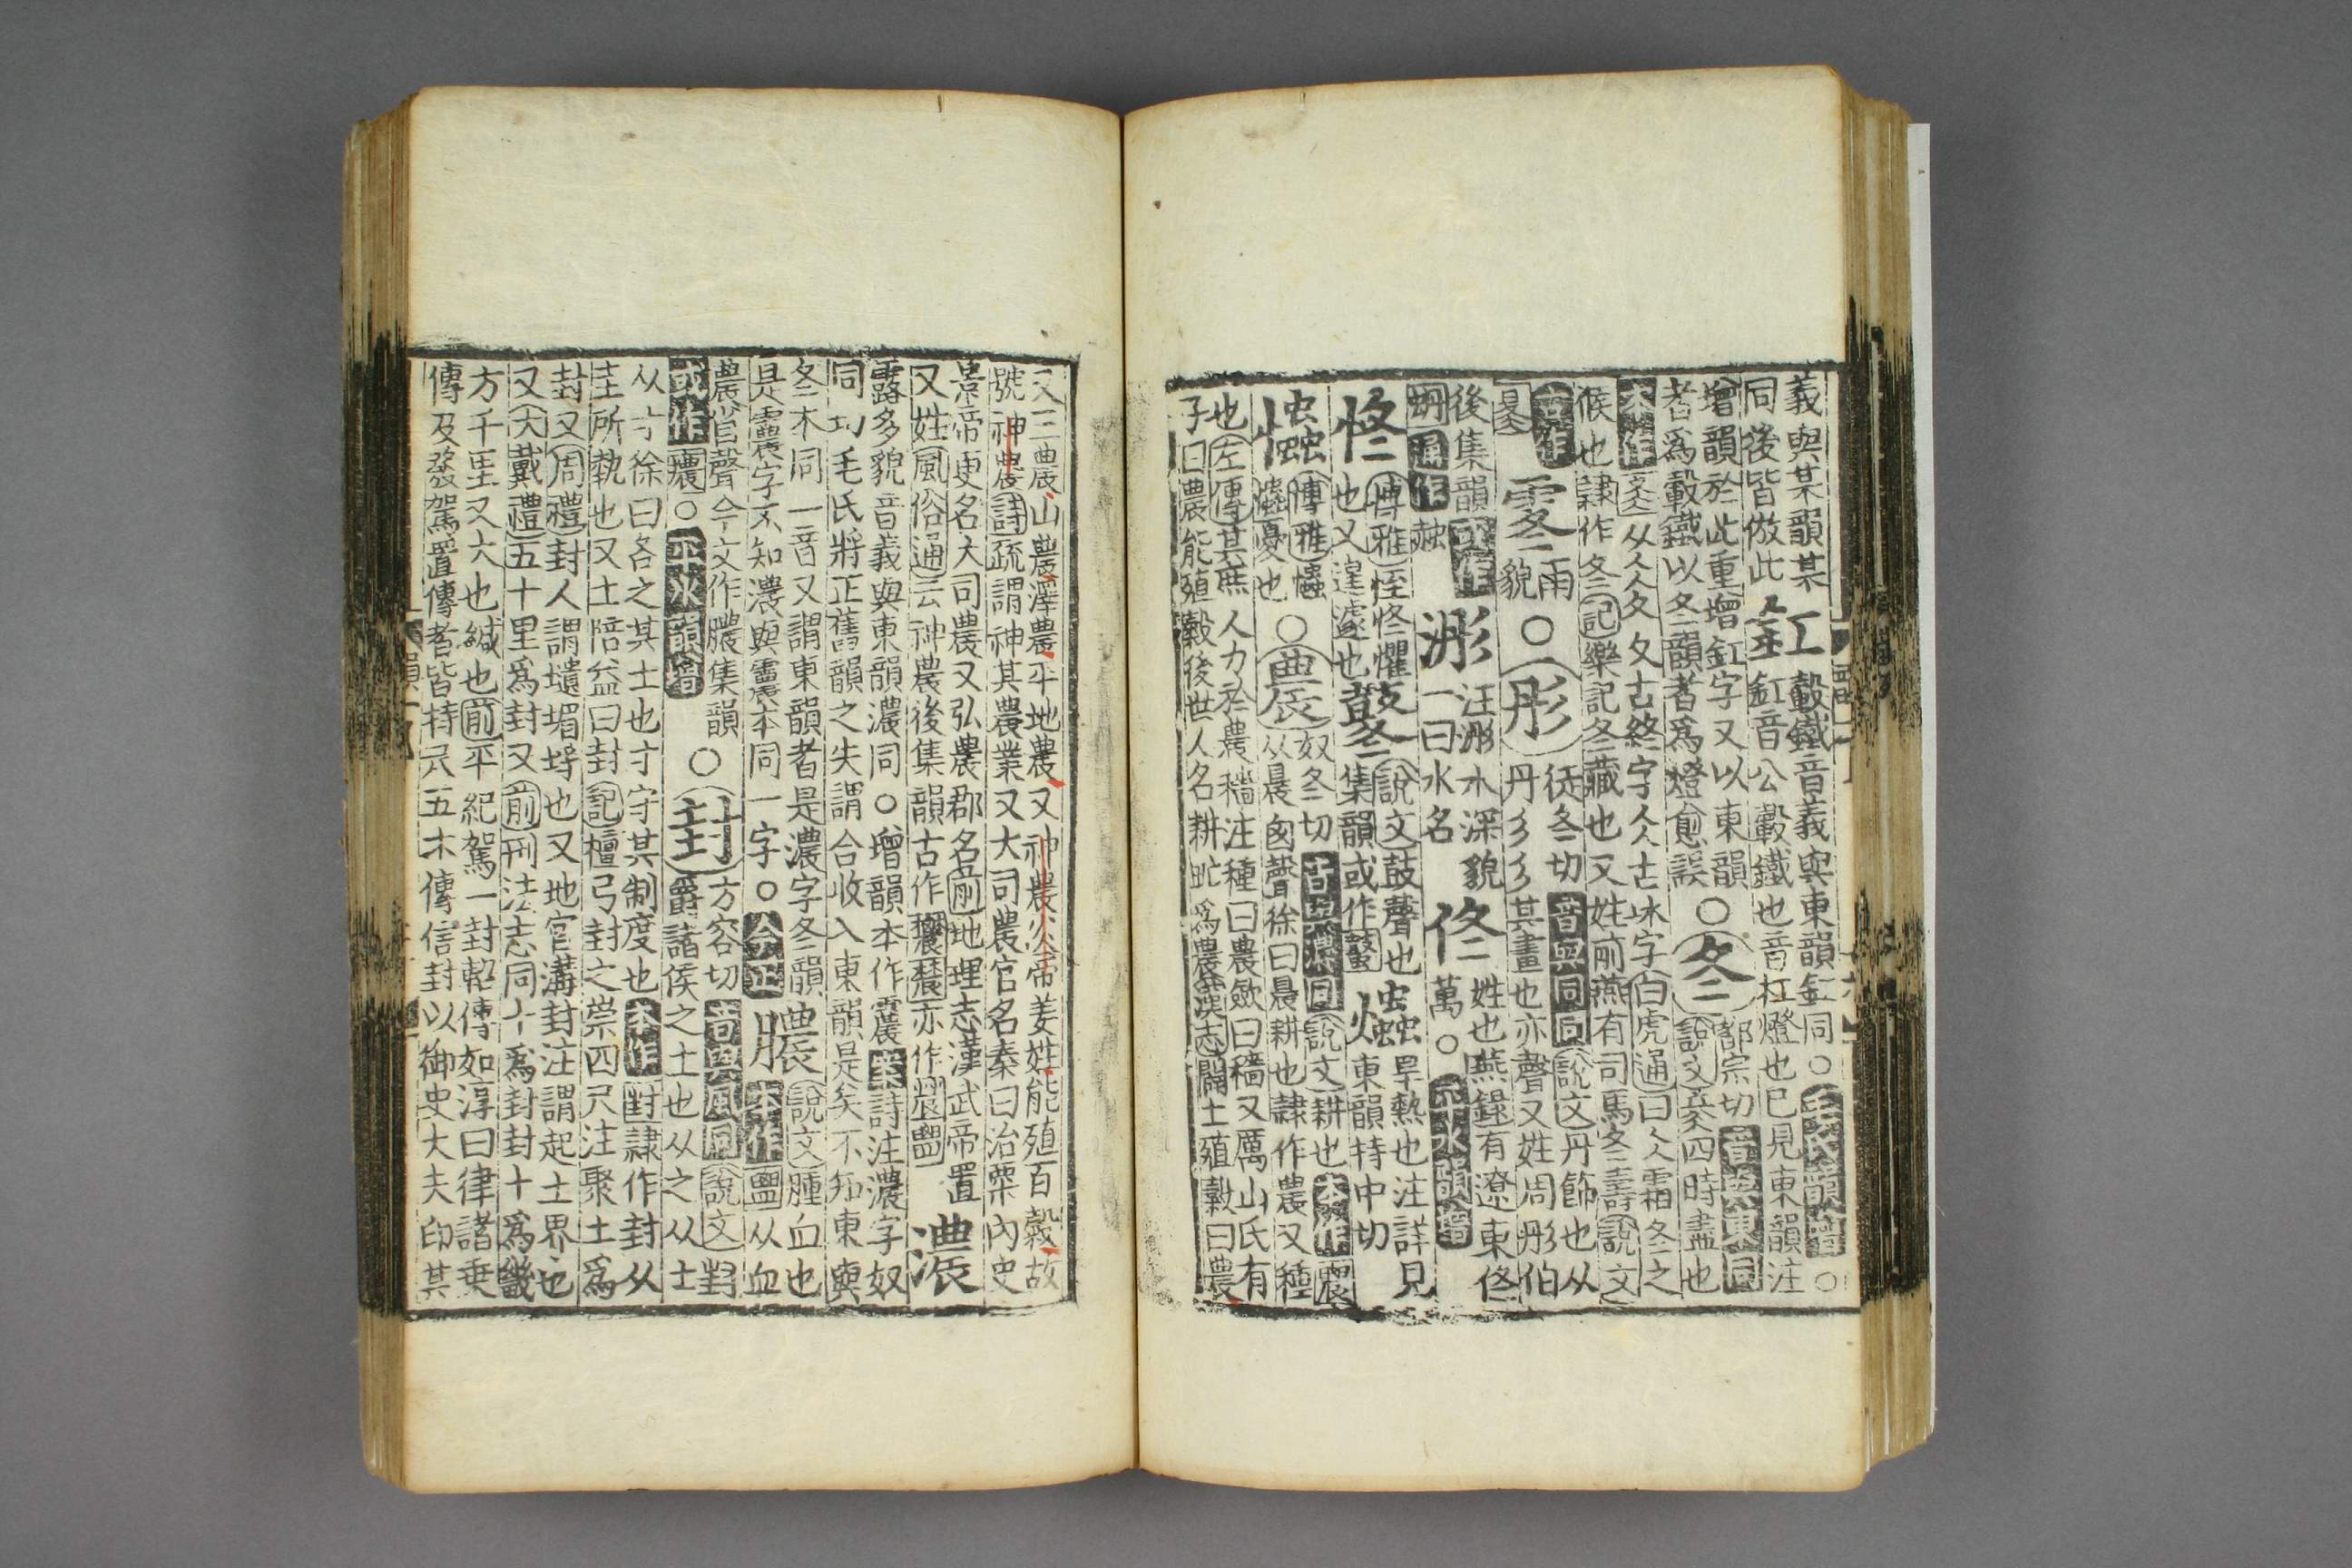 義與某韻某
同後皆倣此
釭
轂鐵音義與東韻釭同○毛氏韻增○
釭音公轂鐵也音杠燈也已見東韻注
增韻於此重增釭字又以東韻
者爲轂鐵以冬韻者爲燈愈誤
○冬
都宗切音與東同
說文冬四時盡也
本作
从仌夂夂古終字仌古冰字白虎通曰仌霜冬之
候也隷作冬記樂記冬藏也又姓前燕有司馬冬壽說文
古作
霚雨
貌
○彤
徒冬切音與同同說文丹飾也从
丹彡彡其畫也亦聲又姓周彤伯
後集韻
通作
浵
汪浵水深貌
一曰水名
佟
姓也燕錄有遼東佟
萬○平水韻增
佟
博雅恎佟懼
也又遑遽也
鼕
說文鼓聲也
集韻或作
爞
旱熱也注詳見
東韻持中切
博雅
憂也
○農
奴冬切音與濃同說文耕也本作
从晨囟聲徐曰晨耕也隷作農又種
也左傳其庶人力於農穡注種曰農斂曰穡又厲山氏有
子曰農能殖穀後世人名耕甿爲農漢志闢土殖穀曰農
又三農山農澤農平地農又神農炎帝姜姓能殖百穀故
號神農詩疏謂神其農業又大司農官名秦曰治粟內史
景帝更名大司農又弘農郡名前地理志漢武帝置
又姓風俗通云神農後集韻古作
亦作
濃
露多貌音義與東韻濃同○增韻本作
案詩注濃字奴
同切毛氏將正舊韻之失謂合收入東韻是矣不知東與
冬本同一音又謂東韻者是濃字冬韻
是字不知濃與本同一字○今正
膿
說文腫血也
本作从血
農省聲今文作膿集韻
或作○平水韻增
○封
方容切音與風同說文封
爵諸侯之土也从之从土
从寸徐曰各之其土也寸守其制度也本作隷作封从
圭所執也又土陪益曰封記檀弓封之崇四尺注聚土爲
封又周禮封人謂壝堳埓也又地官溝封注謂起土界也
又大戴禮五十里爲封又前刑法志同十爲封封十爲畿
方千里又大也緘也前平紀駕一封軺傳如淳曰律諸乗
傳及發駕置傳者皆持尺五木傳信封以御史大夫印其